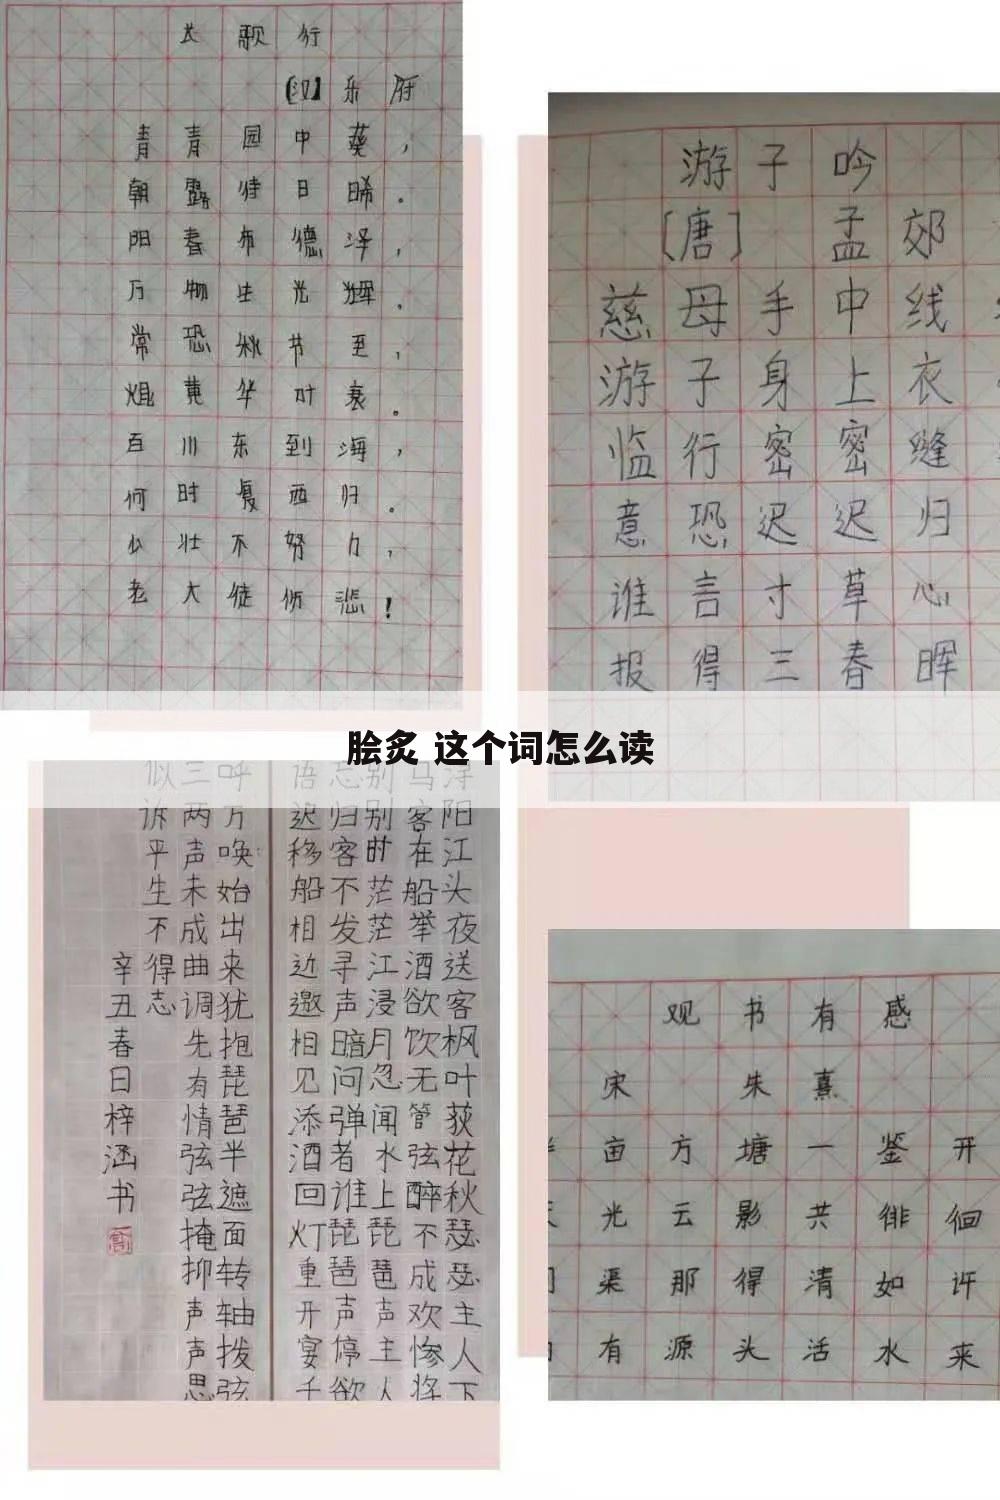 长歌行
【汉】乐府
青青园中葵，
朝露待日晞。
阳春布德泽，
万物生光辉。
常恐秋节至，
焜黄华叶衰。
百川东到海，
何时复西归。
少壮不努力，
老大徒伤悲！
游子吟
[唐] 孟郊
慈母手中线
游子身上衣
临行密密缝
意恐迟迟归
谁言寸草心
报得三春晖
脍炙 这个词怎么读
浔阳江头夜送客枫叶荻花秋瑟瑟主人下
马客在船举酒欲饮无管弦醉不成欢惨将
别别时茫茫江浸月忽闻水上琵琶声主人
忘归客不发寻声暗问弹者谁琵琶声停欲
语迟移船相近邀相见添酒回灯重开宴千
呼万唤始出来犹抱琵琶半遮面转轴拨弦
三两声未成曲调先有情弦弦掩抑声声思
似诉平生不得志
辛丑春日梓涵书
观书有感
宋 朱熹
亩方塘一鉴开
光云影共徘徊
渠那得清如许
有源头活水来